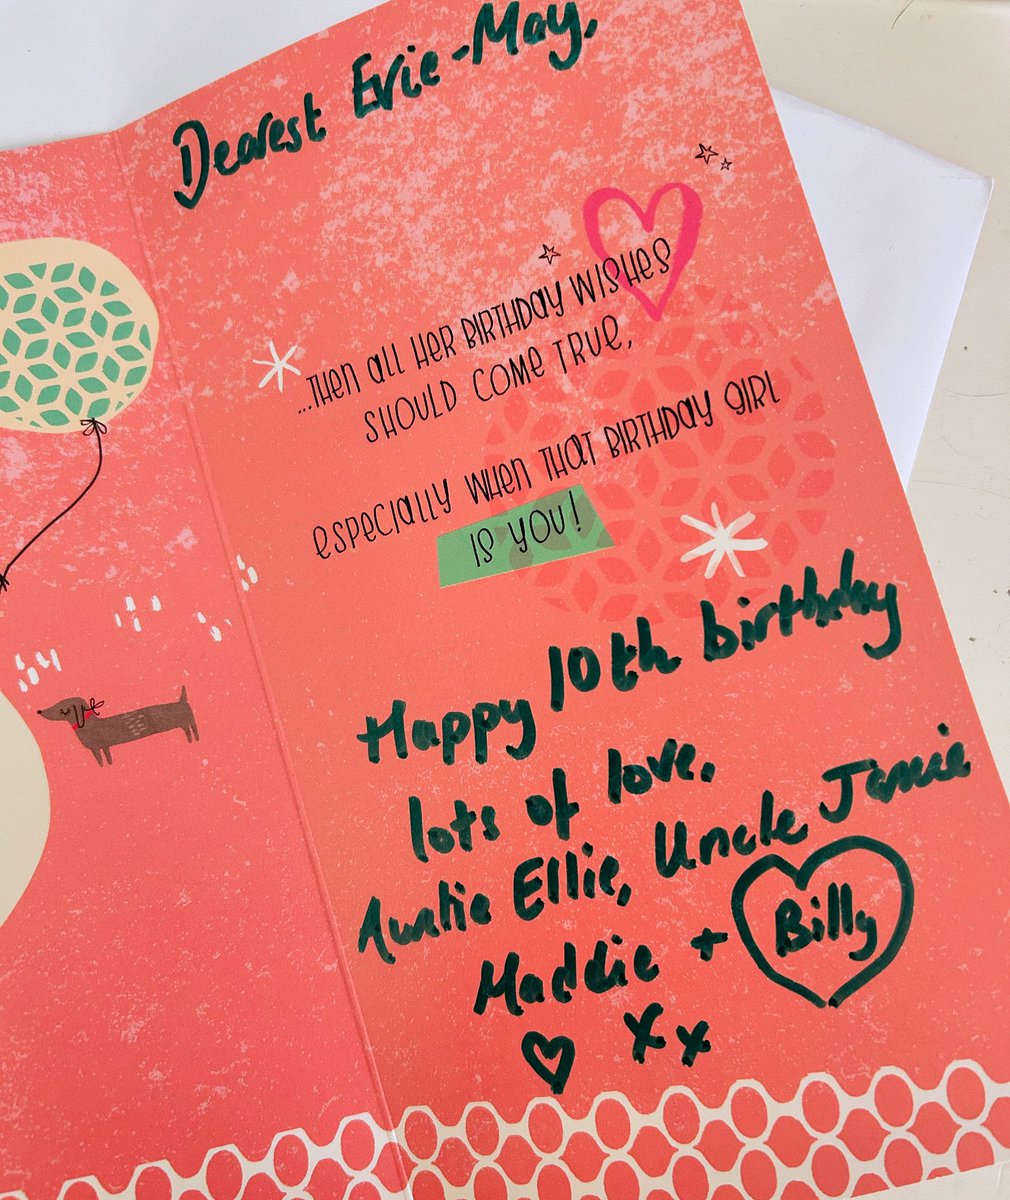 Dearest Evie-May,
...THEN all HER BIRTHDAY WISHES
SHOULD COME TRUE,
especially WHEN THAT BIRTHDAY GIRL
IS YOU!
Happy 10th birthday
lots of love,
Auntie Ellie, Uncle Jamie
Maddie + Billy
xx